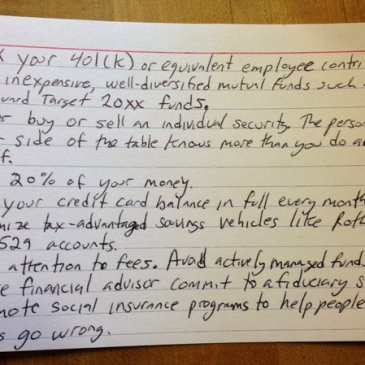 X your 401(k) or equivalent employee contri
inexpensive, well-diversified mutual funds such
uard Target 20xx funds.
er buy or sell an individual security. The perso
r side of the table knows more than you do a
f.
20% of your money.
your credit card balance in full every month
mize tax-advantaged savings vehicles like Roth
529 accounts.
attention to fees. Avoid actively managed fund
e financial advisor commit to a fiduciary s
mote social insurance programs to help people
s go wrong.